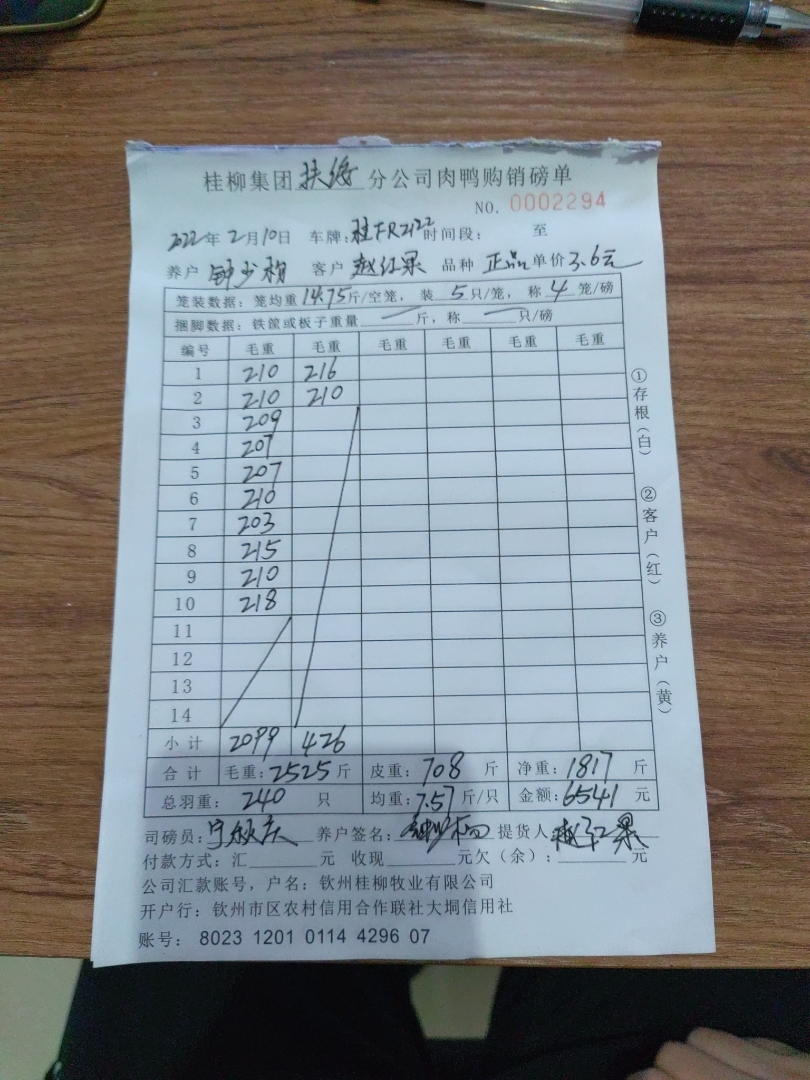 桂柳集团扶绥分公司肉鸭购销磅单
NO. 0002294
2022年2月10日 车牌:桂FR2122时间段: 至
养户 钟少梅 客户 赵红果 品种 正品 单价 3.6元
笼装数据: 笼均重14.75斤/空笼, 装5只/笼, 称4笼/磅
捆脚数据: 铁筐或板子重量 斤, 称 只/磅
编号 毛重 毛重 毛重 毛重 毛重 毛重
1 210 216
2 210 210
3 209
4 207
5 207
6 210
7 203
8 215
9 210
10 218
11
12
13
14
小计 2099 426
合计 毛重:2525斤 皮重:708斤 净重:1817斤
总羽重: 240 只 均重:7.57斤/只 金额:6541元
司磅员: 养户签名: 提货人 赵红果
付款方式: 汇 元 收现 元欠(余): 元
公司汇款账号, 户名: 钦州桂柳牧业有限公司
开户行: 钦州市区农村信用合作联社大垌信用社
账号: 8023 1201 0114 4296 07
①存根(白)
②客户(红)
③养户(黄)